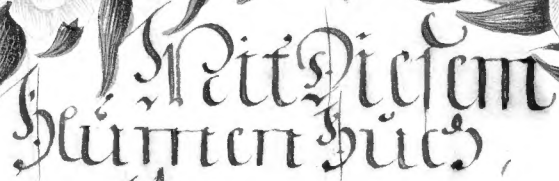 Mit Diesem
Blumen Buch,